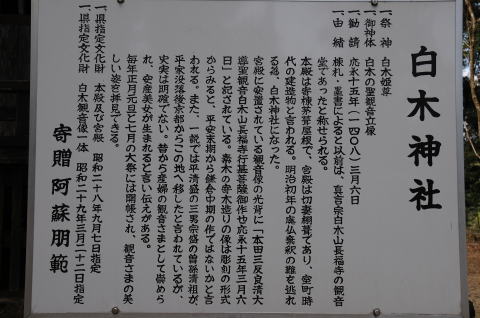 白木神社
一、祭神 白木姫尊
一、御神体 白木の聖観音立像
一、勧請 応永十五年(一四〇八)三月六日
一、由緒 棟札、墨書によると以前は、真言宗白木山長福寺の観音
堂であったと称せられる。
本殿は寄棟茅葺屋根で、宮殿は切妻栩葺であり、室町時
代の建造物と言われる。明治初年の廃仏棄釈の難を逃れ
る為、白木神社になった。
宮殿に安置されている観音像の光背に「本田三反良清大
導聖観音白木山長福寺行基菩薩御作也応永十五年三月六
日」と記されている。素木の寄木造りの像は彫刻の形式
からみると、平安末期から鎌倉中期の作ではないかと言
われる。また、一説では平清盛の三男宗盛の曽孫清祖が、
平家没落後京都からこの地へ移したと言われているが、
史実は明確でない。昔から産婦の観音さまとして崇めら
れ、安産美女が生まれると言い伝えがある。
毎年正月元旦と七月の大祭には開帳され、観音さまの美
しい姿を拝見できる。
一、県指定文化財 本殿及び宮殿 昭和二十八年九月七日指定
一、県指定文化財 白木観音像一体 昭和二十九年三月二十二日指定
寄贈 阿蘇朋範